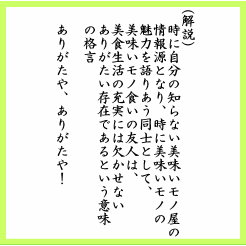 （解説）
時に自分の知らない美味いモノ屋の
情報源となり、時に美味いモノの
魅力を語りあう同士として、
美味いモノ食いの友人は、
美食生活の充実には欠かせない
ありがたい存在であるという意味
の格言
ありがたや、ありがたや！